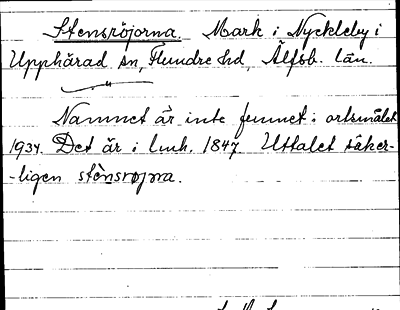 Stensröjorna. Mark i Nyckleby i
Upphärad sn, Flundre hd, Älfsb. län.
Namnet är inte funnet i ortsmålet
1934. Det är i lmh. 1847. Uttalet säker-
-ligen stènsrøjora.